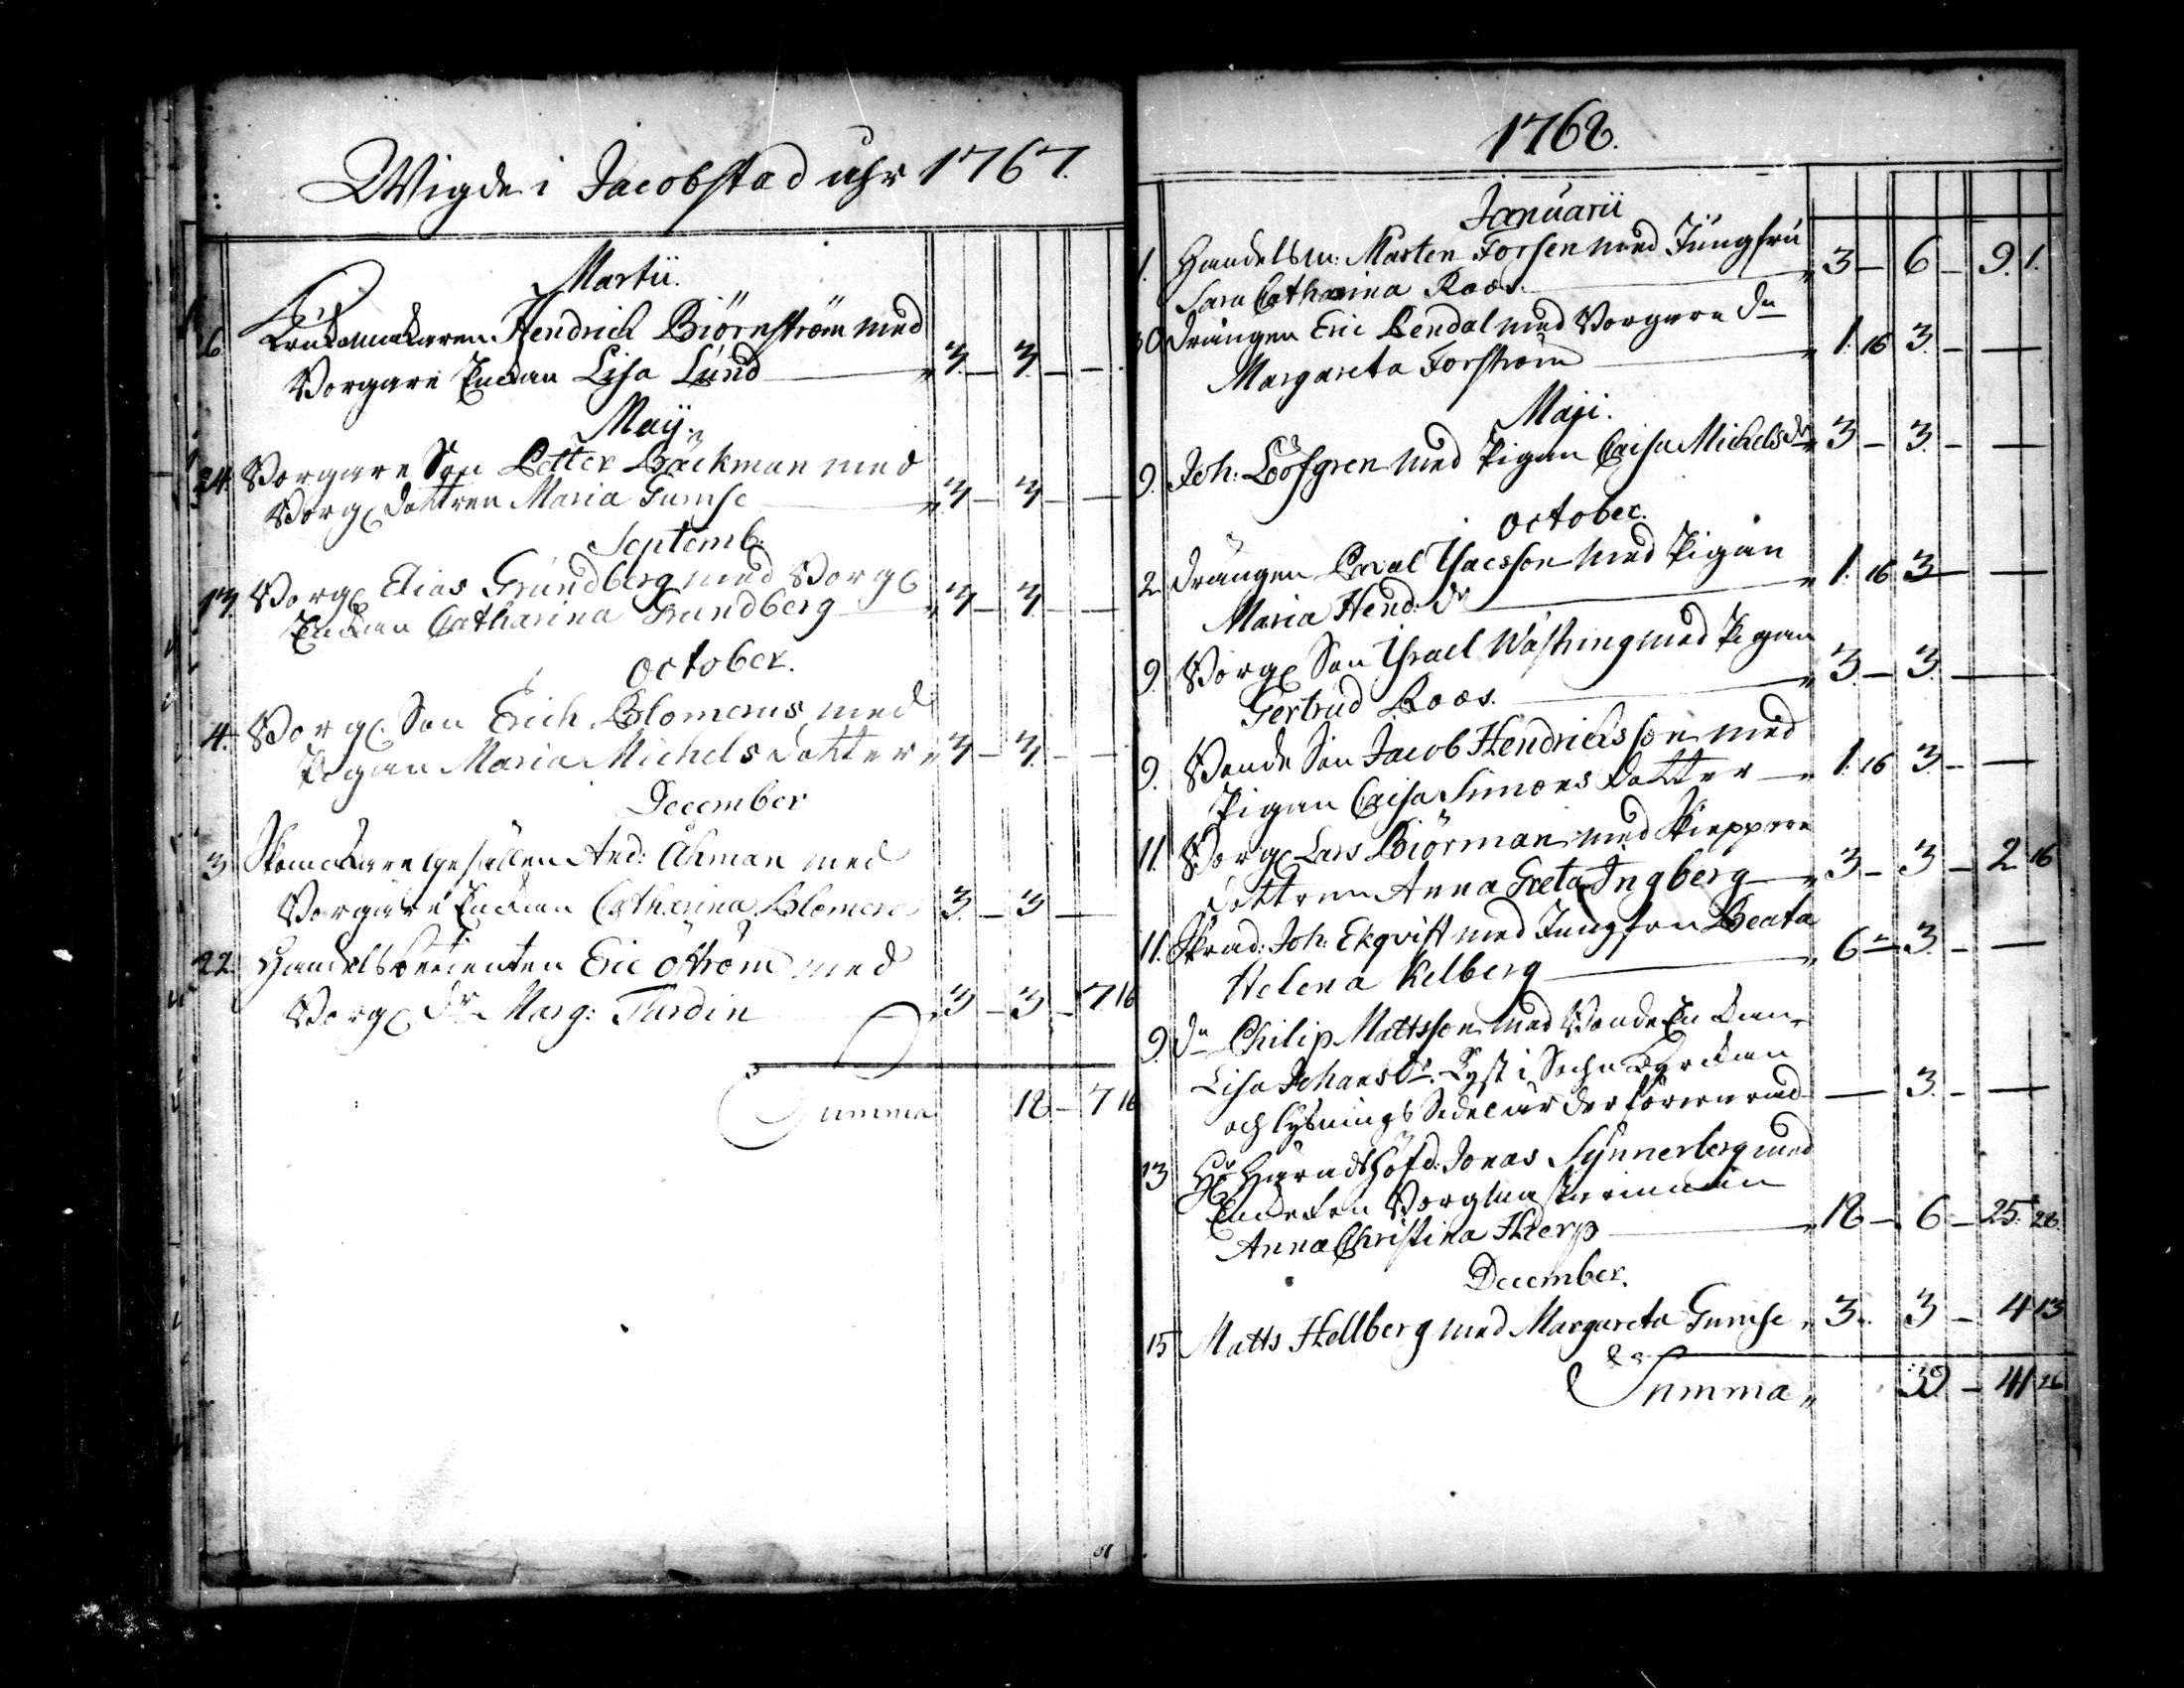 Wigde i Jacobstad uhr 1767.
Martii.
6. Krukomakaren Hendrich Biörnström med
Borgare Enckan Lisa Lund 3. — 3. — —
Maij.
24. Borgare Son Petter Bäckman med
Borg. dottren Maria Gumse 3 — 3 — —
Septemb:
13. Borg. Elias Grundberg med Borg.
Enckan Catharina Grundberg 3 — 3. —
October.
4. Borg. Son Erich Blomerus med
Pigan Maria Michelsdotter 3 — 3. — —
December
3 Skomakare Gesällen And: Åhman med
Borgare Enckan Catharina 3. — 3 —
22. Handelsbetienten Eric Öström med
Borg. dr Marg: Turdin 3 — 3 — 7 16
Summa 18 — 7 16
1768.
Januarii
1. Handelsm: Mårten Forsen med Jungfru
Sara Catharina Roos. 3 — 6 — 9. 1.
30 Drängen Eric Lendal med Borgare dr
Margareta Forström 1. 16 3. — —
Maji.
9. Joh: Löfgren med Pigan Caisa Michelsdr 3 — 3. — —
October.
2. Drängen Isacsson med Pigan
Maria Hend: dr 1. 16 3 — —
9. Borg. Son Israel Wästning med Pigan
Gertrud Roos. 3. — 3. —
9. Bonde Son Jacob Hendricksson med
Pigan Caisa Simonsdotter 1. 16 3. — —
11. Borg. Lars Biörman med Skieppare
dottren Anna Greta Ingberg 3 — 3 — 2. 16
11. Skrad: Joh: Ekqvist med Jungfrun Beata
Helena Kelberg 6 — 3. — —
9. dn Philip Mattsson med Bonde Enckan
Lisa Johansdr. Lyst i Sochn Kyrckan
och lysnings Sedel — 3. — —
13 Hr Häradshöfd: Jonas Synnerberg med
Enckefru Borgmästarinnan
Anna Christina Herp 18 — 6 — 25: 28.
December.
15 Matts Hellberg med Margareta Gumse 3 . 3 — 4 13
Summa 39. — 41 26